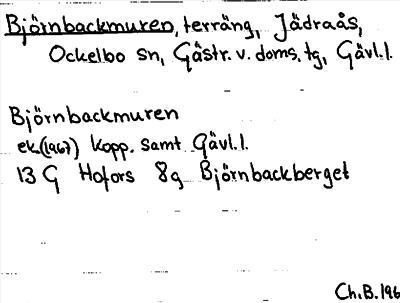 Björnbackmuren, terräng, Jädraås,
Ockelbo sn, Gästr. v. doms. tg, Gävl. l.
Björnbackmuren
ek. (1967) Kopp. samt Gävl. l.
13 G Hofors 8g Björnbackberget
Ch. B. 196